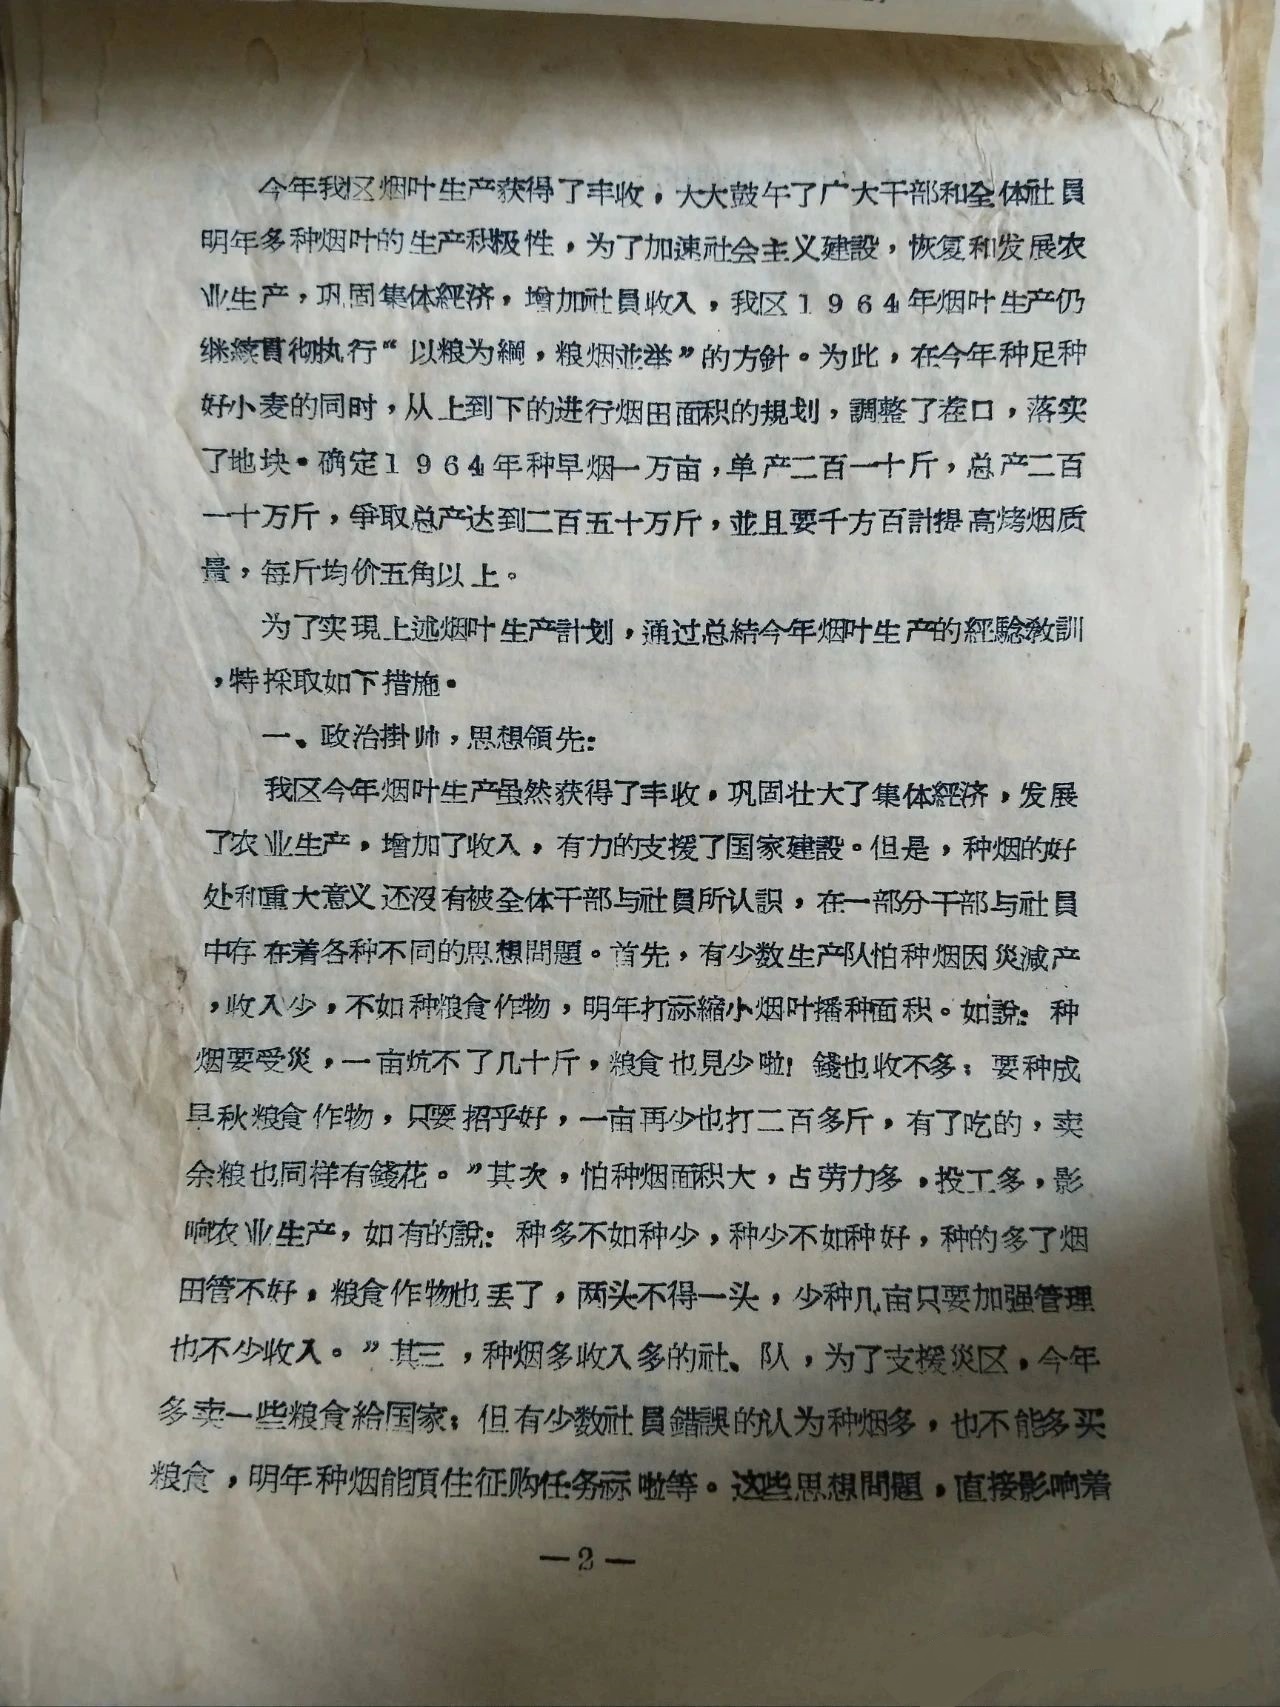 今年我区烟叶生产获得了丰收，大大鼓午了广大干部和全体社員
明年多种烟叶的生产积极性，为了加速社会主义建設，恢复和发展农
业生产，巩固集体經济，增加社員收入，我区1964年烟叶生产仍
继續貫彻执行“以粮为綱，粮烟並举”的方針。为此，在今年种足种
好小麦的同时，从上到下的进行烟田面积的規划，調整了茬口，落实
了地块。确定1964年种早烟一万亩，单产二百一十斤，总产二百
一十万斤，爭取总产达到二百五十万斤，並且要千方百計提高烤烟质
量，每斤均价五角以上。
为了实現上述烟叶生产計划，通过总結今年烟叶生产的經驗教訓
，特採取如下措施。
一、政治掛帅，思想領先：
我区今年烟叶生产虽然获得了丰收，巩固壮大了集体經济，发展
了农业生产，增加了收入，有力的支援了国家建設。但是，种烟的好
处和重大意义还沒有被全体干部与社員所认識，在一部分干部与社員
中存在着各种不同的思想問題。首先，有少数生产队怕种烟因災減产
，收入少，不如种粮食作物，明年打祘縮小烟叶播种面积。如說：种
烟要受災，一亩炕不了几十斤，粮食也見少啦！錢也收不多；要种成
早秋粮食作物，只要招乎好，一亩再少也打二百多斤，有了吃的，卖
余粮也同样有錢花。”其次，怕种烟面积大，占劳力多，投工多，影
响农业生产，如有的說：种多不如种少，种少不如种好，种的多了烟
田管不好，粮食作物也丢了，两头不得一头，少种几亩只要加强管理
也不少收入。”其三，种烟多收入多的社、队，为了支援災区，今年
多卖一些粮食給国家；但有少数社員錯誤的认为种烟多，也不能多买
粮食，明年种烟能頂住征购任务祘啦等。这些思想問題，直接影响着
—2—